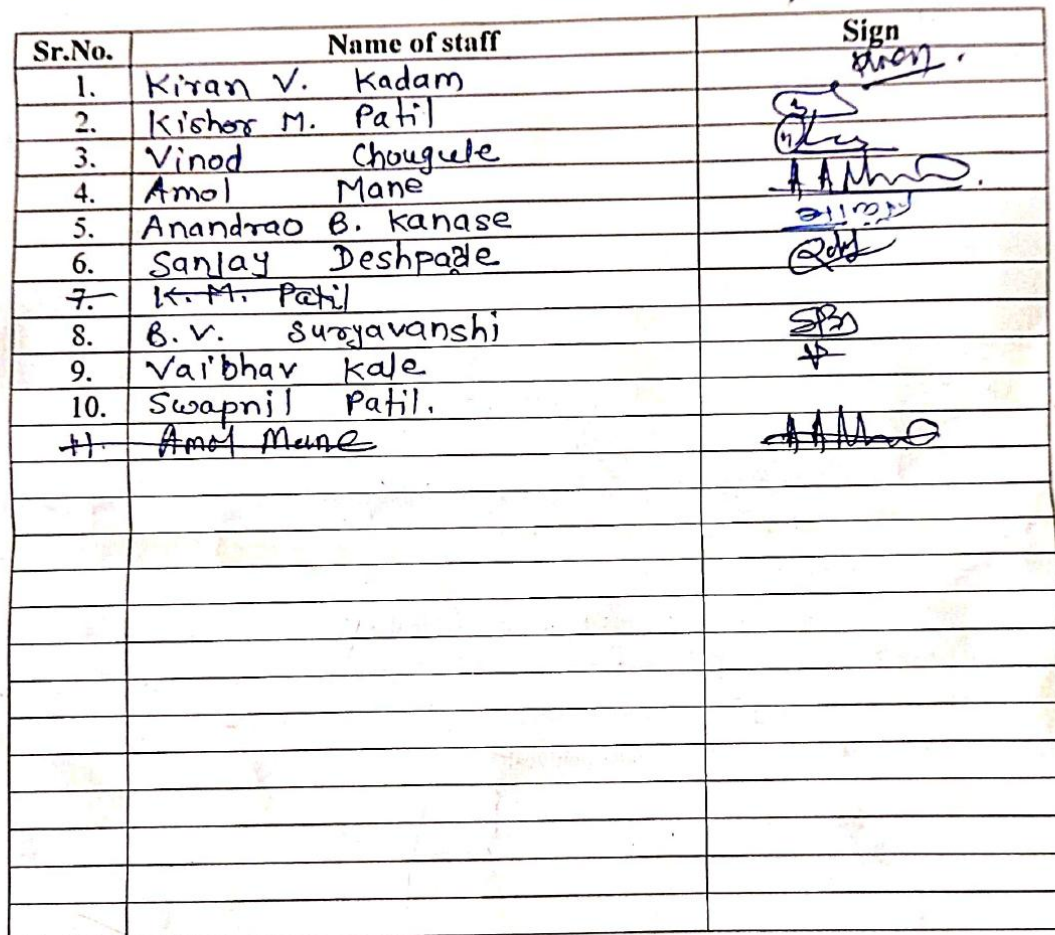 Sr.No. Name of staff Sign
1. Kiran V. Kadam
2. Kishor M. Patil
3. Vinod Chougule
4. Amol Mane
5. Anandrao B. Kanase
6. Sanjay Deshpade
7. K. M. Patil
8. B. V. Suryavanshi
9. Vaibhav Kale
10. Swapnil Patil.
11. Amol Mane